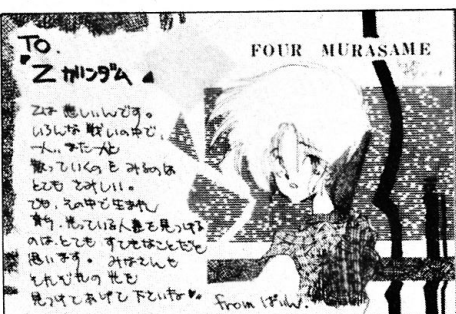 TO.
"Z ガンダム
FOUR MURASAME
Zは 悲しいんです。
いろんな 戦いの中で、
一人、また一人と
散っていくのを みるのは
とても さみしい。
でも、その中で生まれ
育り、光っている人達を見つける
のは、とても すてきなことだと
思います。 みなさんも
それぞれの 光を
見つけてあげて下さいね♥
from ぱりん.